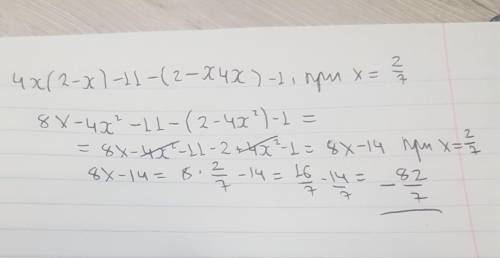 4x(2-x)-11-(2-x4x)-1, при x= 2/7
8x-4x²-11-(2-4x²)-1=
= 8x-4x²-11-2+4x²-1= 8x-14 при x=2/7
8x-14= 8·2/7-14= 16/7-14/7= -82/7